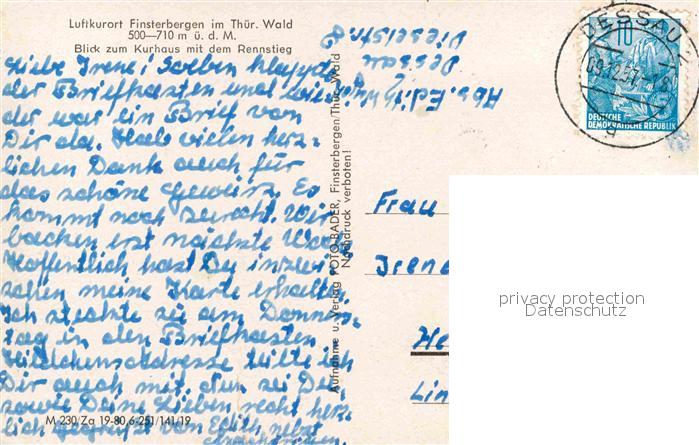 Luftkurort Finsterbergen im Thür. Wald
500—710 m ü. d. M.
Blick zum Kurhaus mit dem Rennstieg
Liebe Irene! Soeben klappte
der Briefkasten und
der war ein Brief von
Dir da. Hab vielen herz-
lichen Dank auch für
das schöne Gewürz. Es
kommt noch zurecht. Wir
backen erst nächste Woche
Hoffentlich hast Du inzwi-
schen meine Karte erhalten
Ich steckte sie am Donners-
tag in den Briefkasten
adresse teilte ich
Dir auch mit. Nun sei Du
sowie Deine Lieben recht herz-
lich gegrüßt von Edith nebst
M 230/Za 19-80,6-251/141/19
Abs. Edith
Dessau
Aufnahme u. Verlag FOTO-BADER, Finsterbergen/Thür. Wald
Nachdruck verboten!
DESSAU
10
DEUTSCHE
DEMOKRATISCHE REPUBLIK
Frau
Irene
He
Lin
privacy protection
Datenschutz